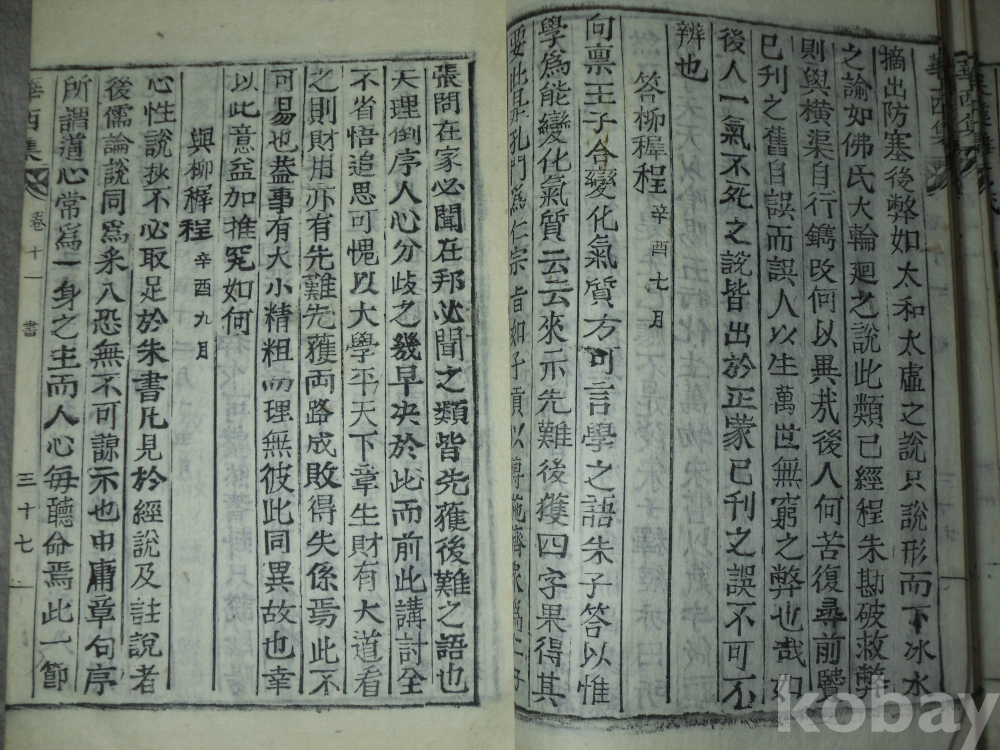 摘出防塞後弊如太和太虛之說只說形而下氷水
之論如佛氏大輪廻之說此類已經程朱勘破救弊
則與橫渠自行鐫改何以異㢤後人何苦復尋前
已刋之舊自誤而誤人以生萬世無窮之弊也㦲如
後人一氣不死之說皆出於正蒙已刋之誤不可不
辨也
答柳穉程 辛酉七月
向禀王子合變化氣質方可言學之語朱子答以惟
學爲能變化氣質云云來示先難後獲四字果得其
要此是孔門爲仁宗旨如子貢以博施濟衆爲仁子
張問在家必聞在邦必聞之類皆先獲後難之語也
天理倒序人心分歧之幾早决於此而前此講討全
不省悟追思可愧以大學平天下章生財有大道看
之則財用亦有先難先獲両路成敗得失係焉此不
可易也盖事有大小精粗而理無彼此同異故也幸
以此意益加推究如何
與柳穉程 辛酉九月
心性說抄不必取足於朱書凡見於經說及註說者
後儒論說同爲来入恐無不可諒示也中庸章句序
所謂道心常爲一身之主而人心每聽命焉此一節
華西集 卷十一 書 三十七
華西集
kobay